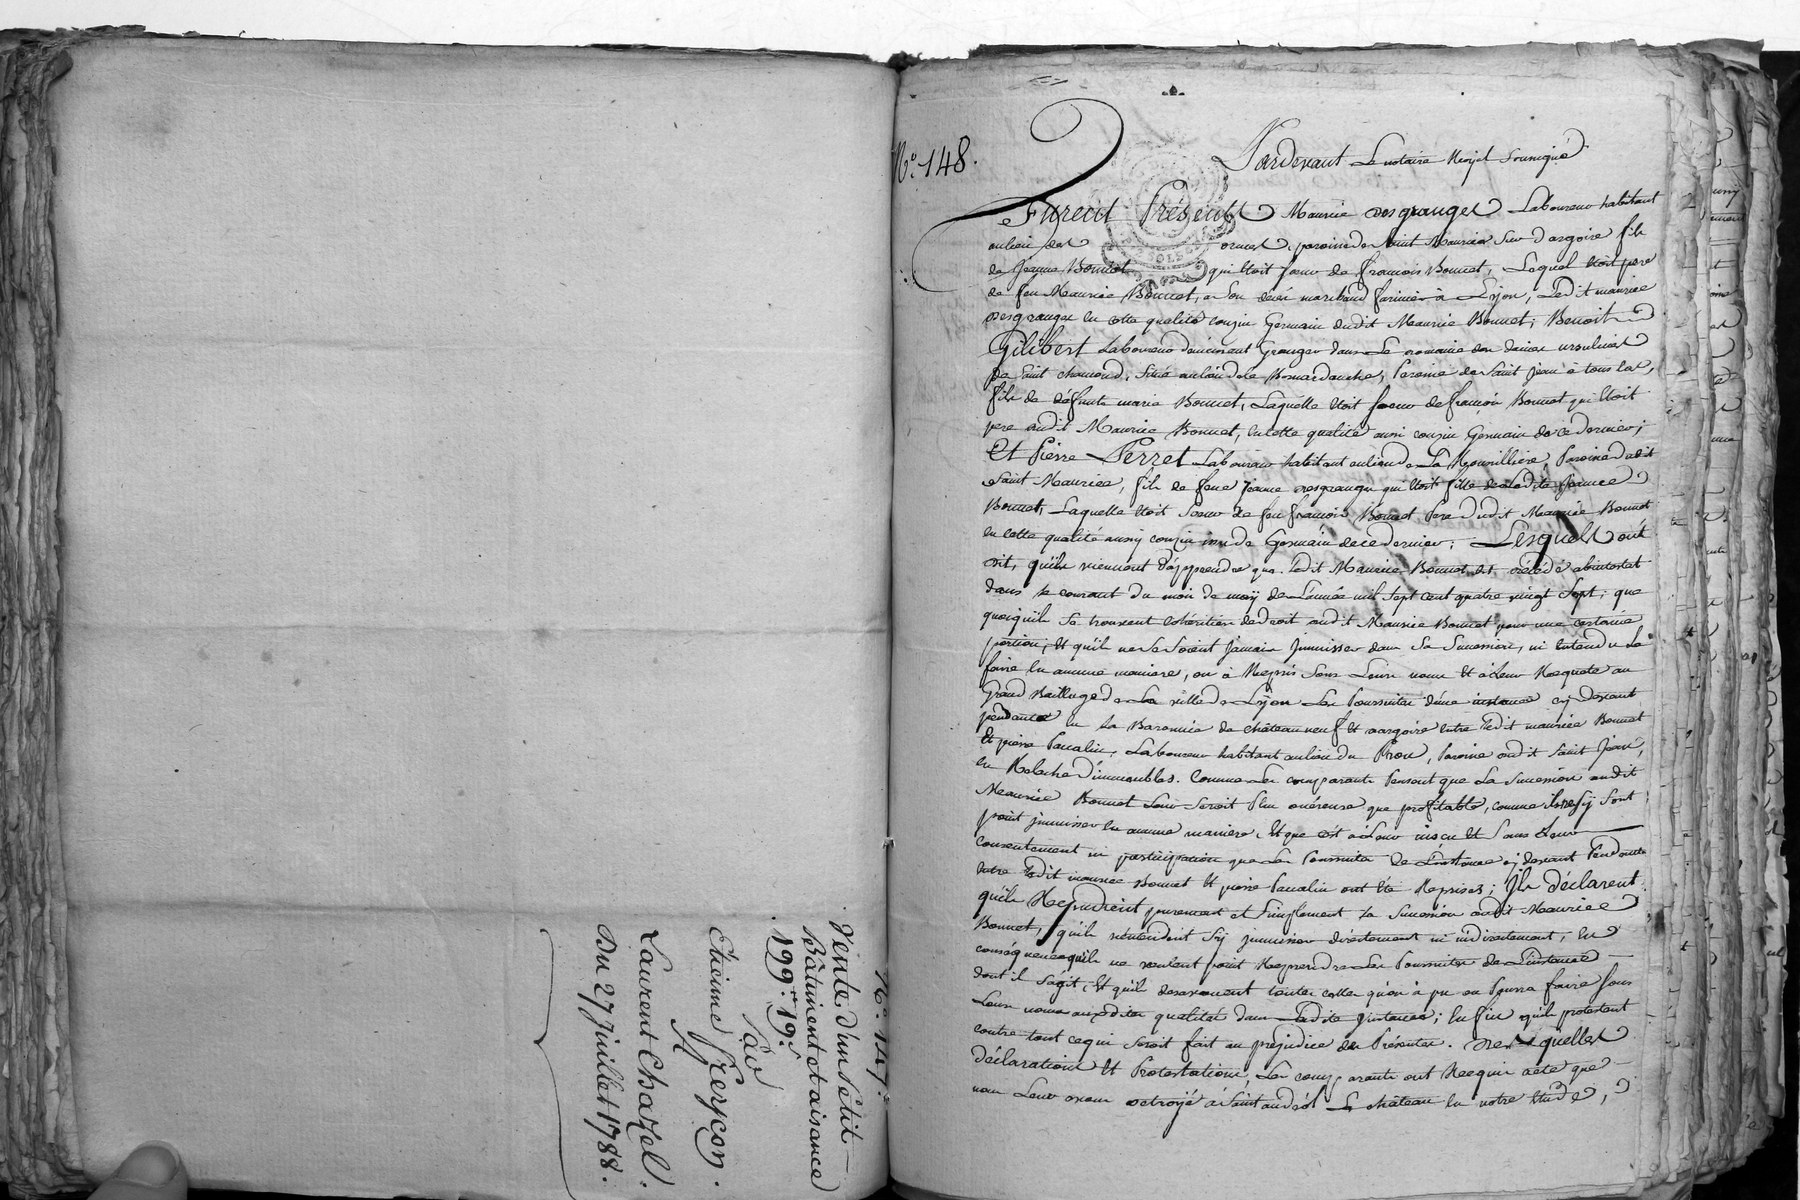 N.o 147.
Vente d'un petit
Bâtiment et aisance
199.# 19.s
Par
Etienne
à
Laurent Chazel.
Du 27 juillet 1788.
N.o 148.
Pardevant Le notaire Royal soussigné
Furent Présents Maurice desgranges Laboureur habitant
au lieu des ormes, paroisse de Saint Maurice Sur d'argoire fils
de Jeanne Bonnet qui étoit soeur de françois Bonnet, Lequel étoit pere
de feu Maurice Bonnet, a son décès marchand farinier à Lyon, Ledit maurice
desgranges en cette qualité cousin Germain dudit Maurice Bonnet; Benoit
Gilibert Laboureur demeurant Granger dans Le domaine des dames ursulines
de Saint chamond, situé au lieu de la Bonnardanche, Paroisse de Saint Jean à tous las,
fils de défunte marie Bonnet, Laquelle étoit soeur de françois Bonnet qui étoit
pere dudit Maurice Bonnet, en cette qualité aussi cousin Germain de ce dernier;
Et Pierre Perret Laboureur habitant au lieu de La Rousilliere, Paroisse dudit
Saint Maurice, fils de feue Jeanne desgranges qui étoit fille de Ladite Jeanne
Bonnet, Laquelle étoit soeur de feu françois Bonnet Pere dudit Maurice Bonnet
en cette qualité aussy cousin issu de Germain de ce dernier; Lesquels ont
dit, qu'ils viennent d'apprendre que Ledit Maurice Bonnet est décédé abintestat
dans le courant du mois de may de L'année mil sept cent quatre vingt Sept; que
quoiqu'ils se trouvent cohéritiers de droit dudit Maurice Bonnet pour une certaine
portion, et qu'ils ne se soient jamais immisser dans sa succession, ni entendu le
faire en aucune maniere, on à Repris sous Leurs noms et à leur Requete au
Grand Bailliage de La ville de Lyon Les Poursuites d'une instance cy devant
pendante en la Baronnie de châteauneuf et dargoire entre Ledit maurice Bonnet
Et pierre Paccalin, Laboureur habitant au lieu du, Paroisse dudit Saint Jean,
en Relache d'immeubles. Comme Les comparants Pensent que La succession dudit
Maurice Bonnet Leur seroit Plus onéreuse que profitable, comme ils ne s'y sont
point immisser en aucune maniere, Et que c'est à Leur insçu et sans Leur
consentement ni participation que Les Poursuites de L'instance cy devant Pendante
entre Ledit maurice Bonnet et pierre Paccalin ont été Reprises; Ils déclarent
qu'ils Repudient purement et simplement La succession dudit Maurice
Bonnet, qu'ils n'entendent s'y immisser directement ni indirectement, en
conséquence qu'ils ne veulent point Reprendre Les Poursuites de L'instance
dont il s'agit, Et qu'ils desavouent toutes celles qu'on à pu ou Pourra faire sous
Leurs noms auxdites qualités dans Ladite instance; Enfin qu'ils protestent
contre tout ce qui seroit fait au préjudice des Présentes. Desquelles
déclarations Et Protestations, Les comparants ont Requis acte que
nous Leur avons octroyé à Saint andéol Le château en notre étude,